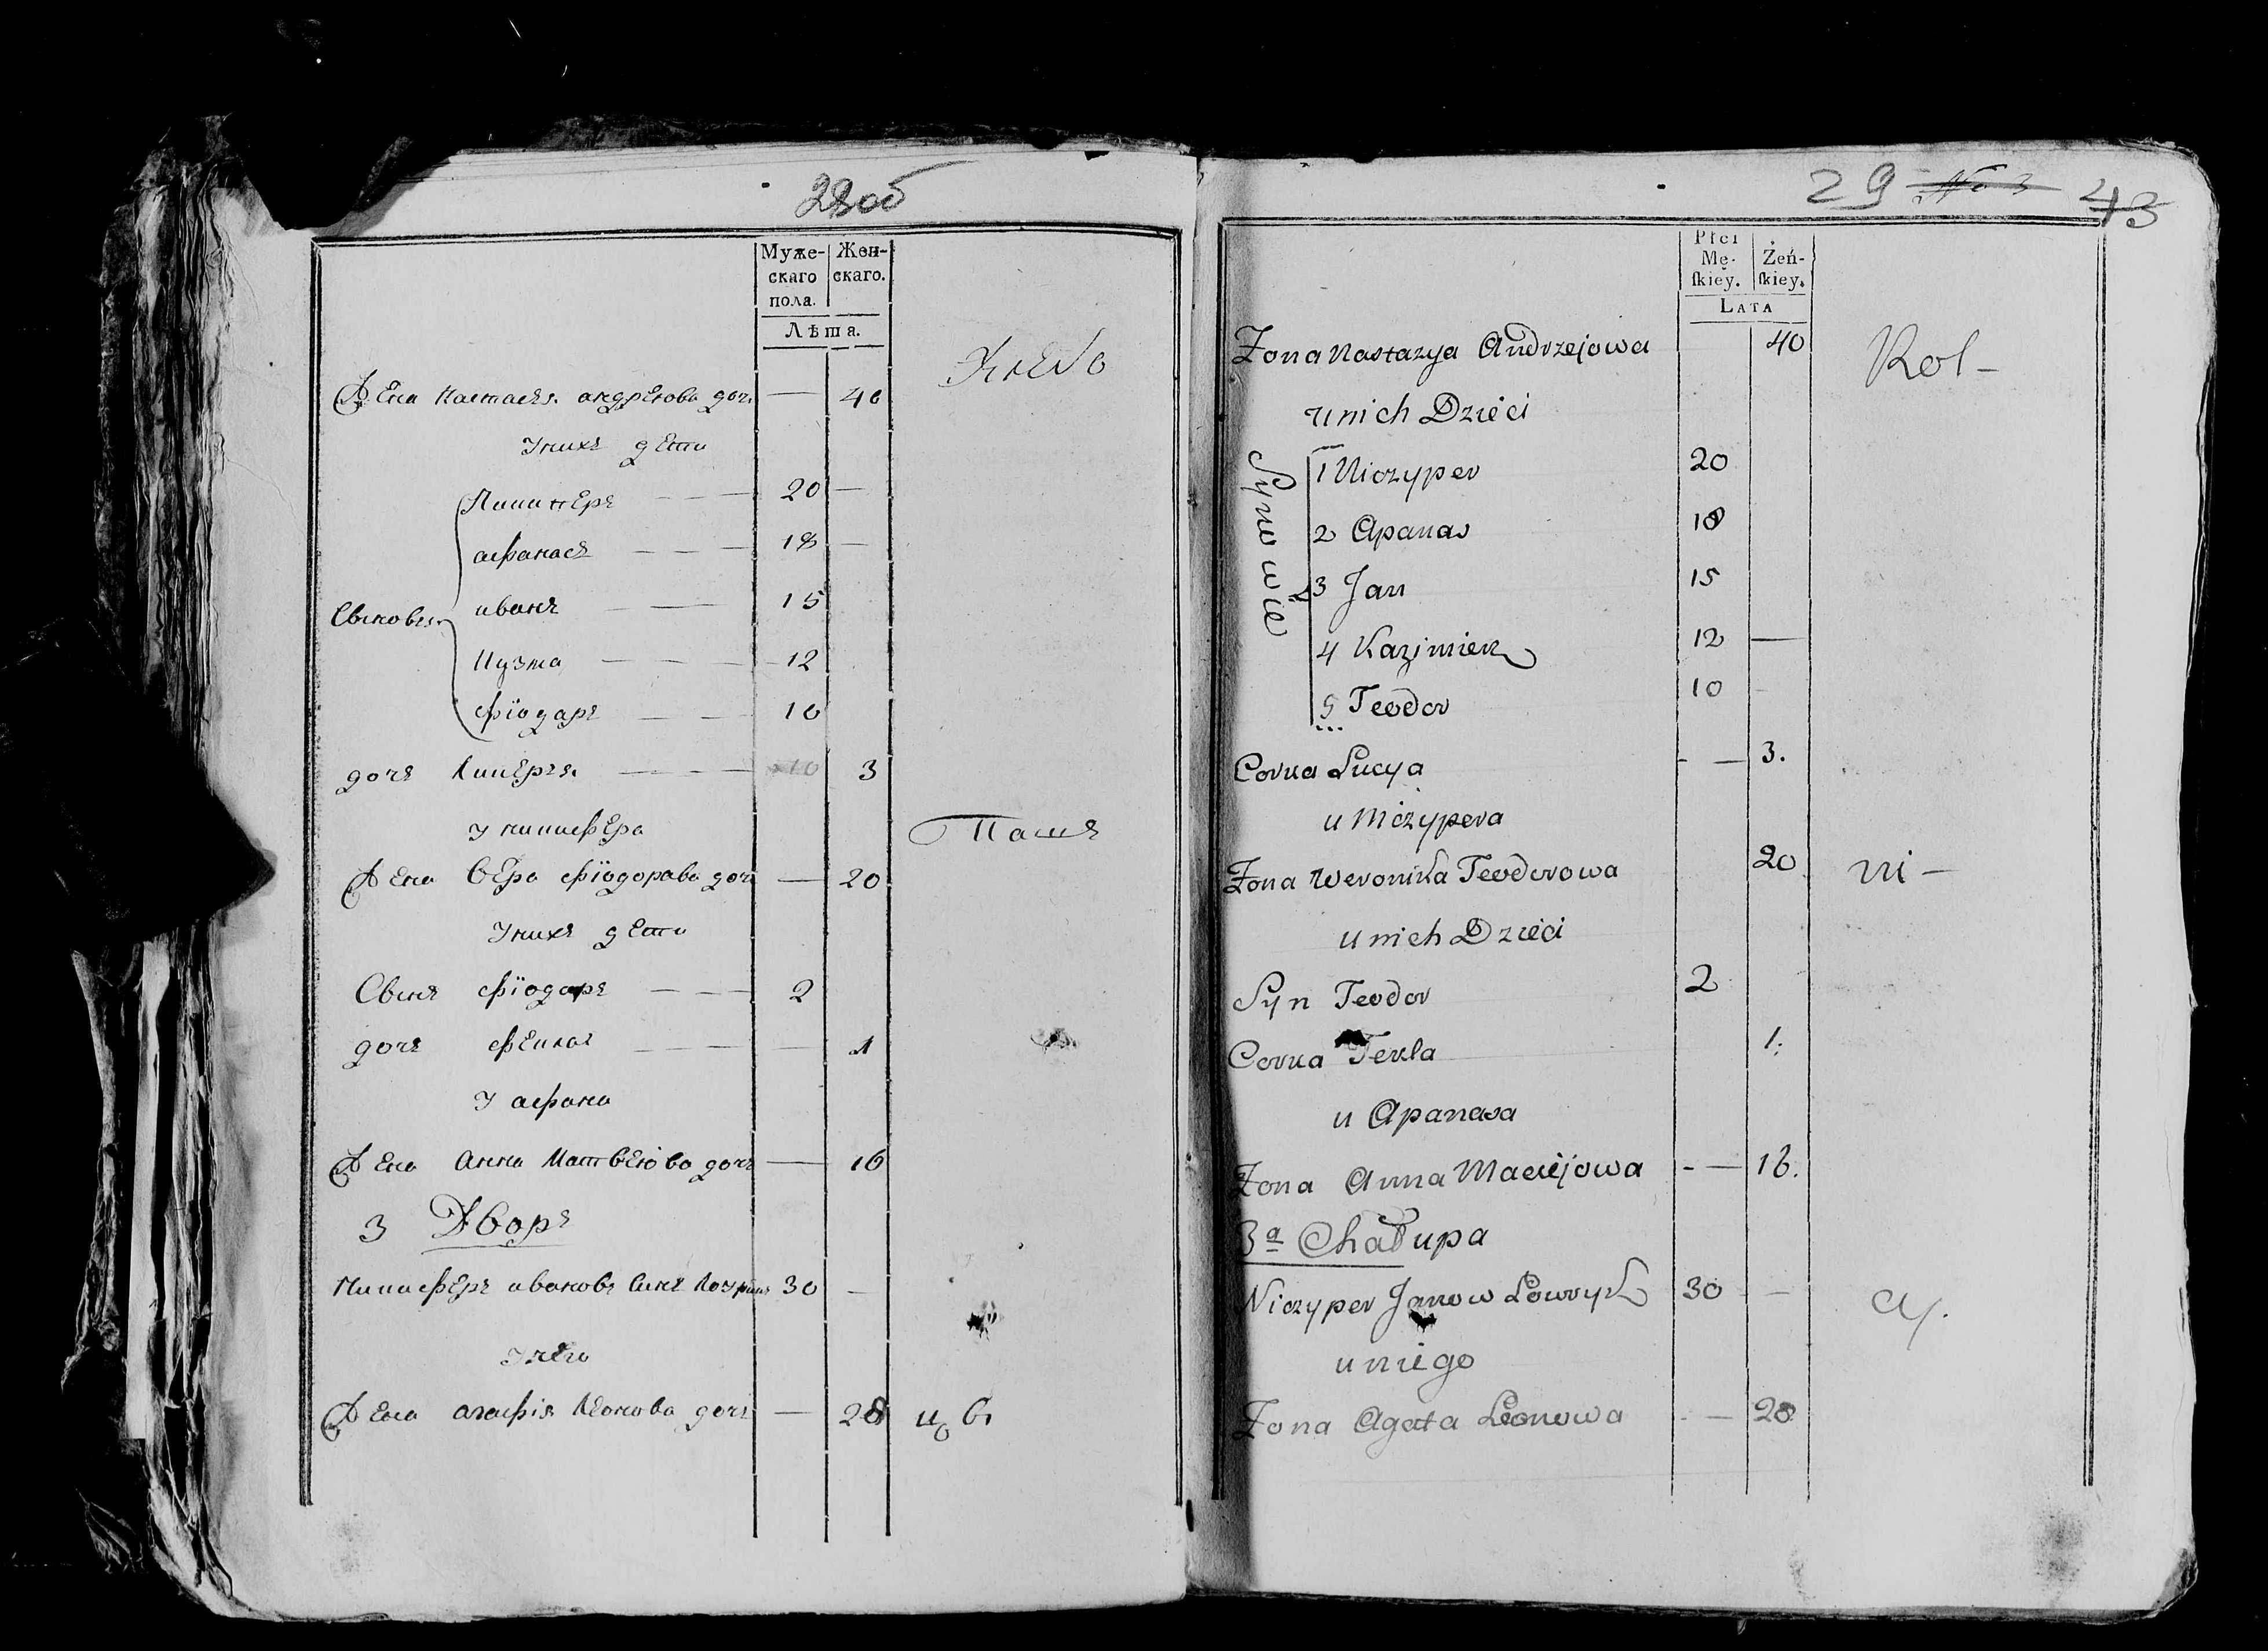 28об
Муже-
скаго
пола.
Жен-
скаго.
Лѣта.
Жена Настасья андрѣюва доч. — 40
У нихъ дети
Сыновья
Никиперъ — — — 20 —
афанасъ — — — 18 —
иванъ — — 15
Кузма — — — 12
фіодаръ — — 10
дочъ Ликерья — — — 3
У никифера
Пашъ
Жена вера фіодорава дочъ — 20
У нихъ дети
Сынъ фіодаръ — — — 2
дочъ фекла — — — 1
У афана
Жена анна Матвеюва дочъ — 16
3 Дворъ
Никиферъ ивановъ синъ 30 —
У него
Жена агафія Леонова дочъ — 28 цовъ
29 No 3 43
Płci
Mę-
ſkiey.
Żeń-
ſkiey.
LATA
Żona Nastazya Andrzejowa 40 Rol-
u nich Dzieci
Synowie
1 Niczyper 20
2 Apanas 18
3 Jan 15
4 Kazimierz 12 —
5 Teodor 10
Corka Lucya - — 3.
u Niczypera
Żona Weronika Teodorowa 20 ni-
u nich Dzieci
Syn Teodor 2
Corka Tekla 1.
u Apanasa
Żona Anna Maciejowa - — 16.
3a Chałupa
Niczyper Janow Lowryk 30 — cy.
u niego
Żona Agata Leonowa - — 28